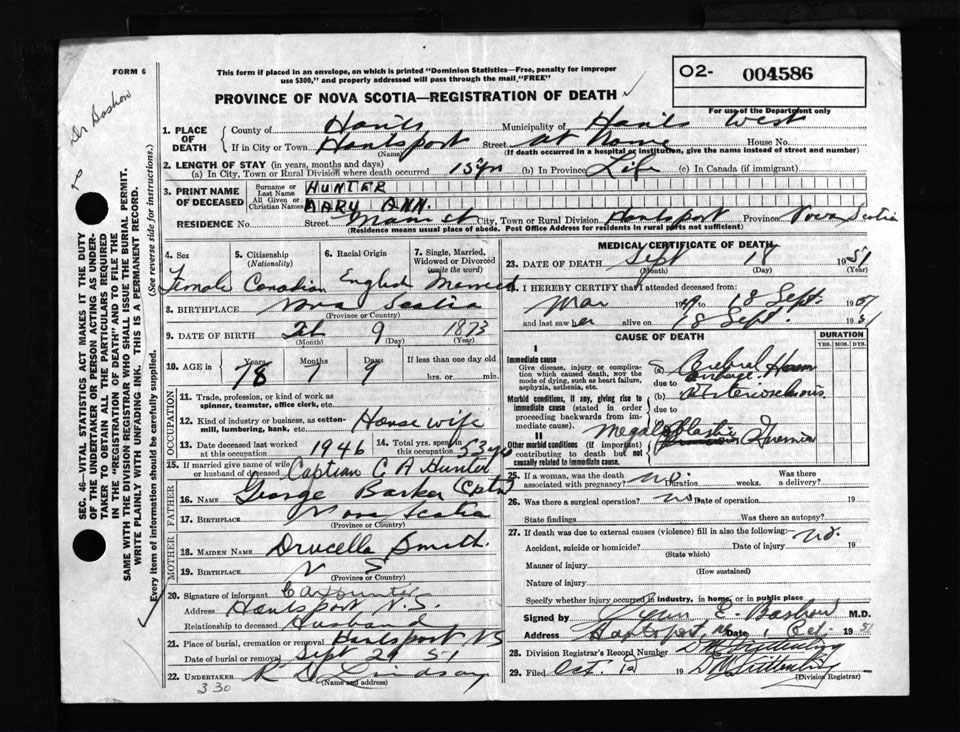 FORM 6
Dr Bashow
This form if placed in an envelope, on which is printed "Dominion Statistics—Free, penalty for improper
use $300," and properly addressed will pass through the mail "FREE"
O2- 004586
For use of the Department only
PROVINCE OF NOVA SCOTIA—REGISTRATION OF DEATH
SEC. 46—VITAL STATISTICS ACT MAKES IT THE DUTY
OF THE UNDERTAKER OR PERSON ACTING AS UNDER-
TAKER TO OBTAIN ALL THE PARTICULARS REQUIRED
IN THE "REGISTRATION OF DEATH" AND TO FILE THE
SAME WITH THE DIVISION REGISTRAR WHO SHALL ISSUE THE BURIAL PERMIT.
WRITE PLAINLY WITH UNFADING INK. THIS IS A PERMANENT RECORD.
Every item of information should be carefully supplied. (See reverse side for instructions.)
1. PLACE OF DEATH County of Hants Municipality of Hants West
If in City or Town Hantsport Street at home House No.
(Name) (If death occurred in a hospital or institution, give the name instead of street and number)
2. LENGTH OF STAY (in years, months and days)
(a) In City, Town or Rural Division where death occurred 15 yrs (b) In Province Life (c) In Canada (if immigrant)
3. PRINT NAME OF DECEASED Surname or Last Name HUNTER
All Given or Christian Names MARY ANN.
RESIDENCE No. Street City, Town or Rural Division Hantsport Province Nova Scotia
(Residence means usual place of abode. Post Office Address for residents in rural parts not sufficient)
4. Sex 5. Citizenship (Nationality) 6. Racial Origin 7. Single, Married, Widowed or Divorced (write the word)
Female Canadian English Married
8. BIRTHPLACE Nova Scotia
(Province or Country)
9. DATE OF BIRTH Feb 9 1873
(Month) (Day) (Year)
10. AGE in Years Months Days If less than one day old
78 7 9 hrs. or min.
OCCUPATION
11. Trade, profession, or kind of work as spinner, teamster, office clerk, etc.
12. Kind of industry or business, as cotten-mill, lumbering, bank, etc. House wife
13. Date deceased last worked at this occupation 1946 14. Total yrs. spent in this occupation 53 yrs
15. If married give name of wife or husband of deceased Captian C A Hunter
FATHER
16. NAME George Barker (Cptn)
17. BIRTHPLACE Nova Scotia
(Province or Country)
MOTHER
18. MAIDEN NAME Drucella Smith
19. BIRTHPLACE N S
(Province or Country)
20. Signature of informant C A Hunter
Address Hantsport N.S.
Relationship to deceased Husband
21. Place of burial, cremation or removal Hantsport NS
Date of burial or removal Sept 51
22. UNDERTAKER R D Lindsay
(Name and address)
330
MEDICAL CERTIFICATE OF DEATH
23. DATE OF DEATH Sept 18 1951
(Month) (Day) (Year)
24. I HEREBY CERTIFY that I attended deceased from:
Mar 18 Sept.
and last saw her alive on 18 Sept 1951
CAUSE OF DEATH DURATION
YRS. MOS. DYS.
I
Immediate cause
Give disease, injury or complication which caused death, NOT the mode of dying, such as heart failure, asphyxia, asthenia, etc.
(a) Cerebral
due to
Morbid conditions, if any, giving rise to immediate cause (stated in order proceeding backwards from immediate cause)
(b) Arteriosclerosis
due to
II
Other morbid conditions (if important) contributing to death but not causally related to immediate cause.
Megaloblastic Anemia
25. If a woman, was the death associated with pregnancy? no. Duration weeks. Was there a delivery?
26. Was there a surgical operation? no Date of operation 19
State findings Was there an autopsy?
27. If death was due to external causes (violence) fill in also the following: no.
Accident, suicide or homicide? Date of injury 19
(State which)
Manner of injury
(How sustained)
Nature of injury
Specify whether injury occurred in industry, in home, or in public place
Signed by E. Bashow M.D.
Address Hantsport, NS Date 1 Oct. 1951
28. Division Registrar's Record Number
29. Filed Oct. 19
(Division Registrar)